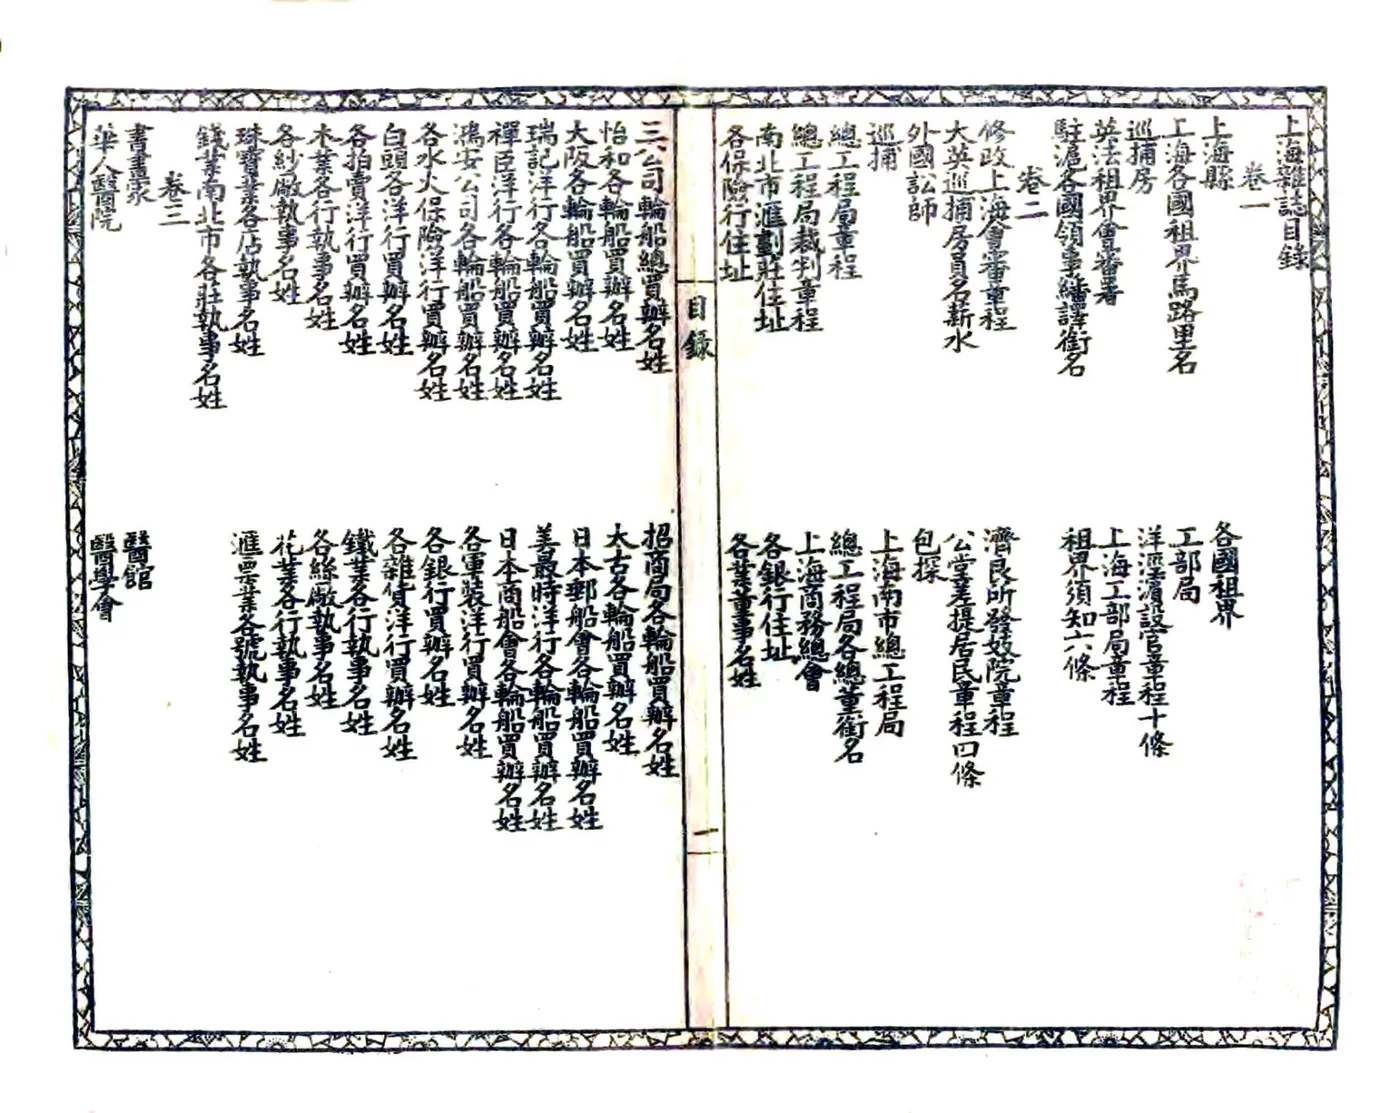 上海雜誌目錄
卷一
上海縣
各國租界
上海各國租界馬路里名
工部局
巡捕房
洋涇濱設官章程十條
英法租界會審署
上海工部局章程
駐滬各國領事繙譯銜名
租界須知六條
卷二
修政上海會審章程
濟良所發妓院章程
大英巡捕房員名薪水
公堂差提居民章程四條
外國訟師
包探
巡捕
上海南市總工程局
總工程局章程
總工程局各總董銜名
總工程局裁判章程
上海商務總會
南北市滙劃莊住址
各銀行住址
各保險行住址
各業董事名姓
目錄
一
三公司輪船總買辦名姓
招商局各輪船買辦名姓
怡和各輪船買辦名姓
太古各輪船買辦名姓
大阪各輪船買辦名姓
日本郵船會各輪船買辦名姓
瑞記洋行各輪船買辦名姓
美最時洋行各輪船買辦名姓
禪臣洋行各輪船買辦名姓
日本商船會各輪船買辦名姓
鴻安公司各輪船買辦名姓
各軍裝洋行買辦名姓
各水火保險洋行買辦名姓
各銀行買辦名姓
白頭各洋行買辦名姓
各雜貨洋行買辦名姓
各拍賣洋行買辦名姓
鐵業各行執事名姓
木業各行執事名姓
各絲廠執事名姓
各紗廠執事名姓
花業各行執事名姓
珠寶業各店執事名姓
滙票業各號執事名姓
錢業南北市各莊執事名姓
卷三
書畫家
醫館
華人醫院
醫學會